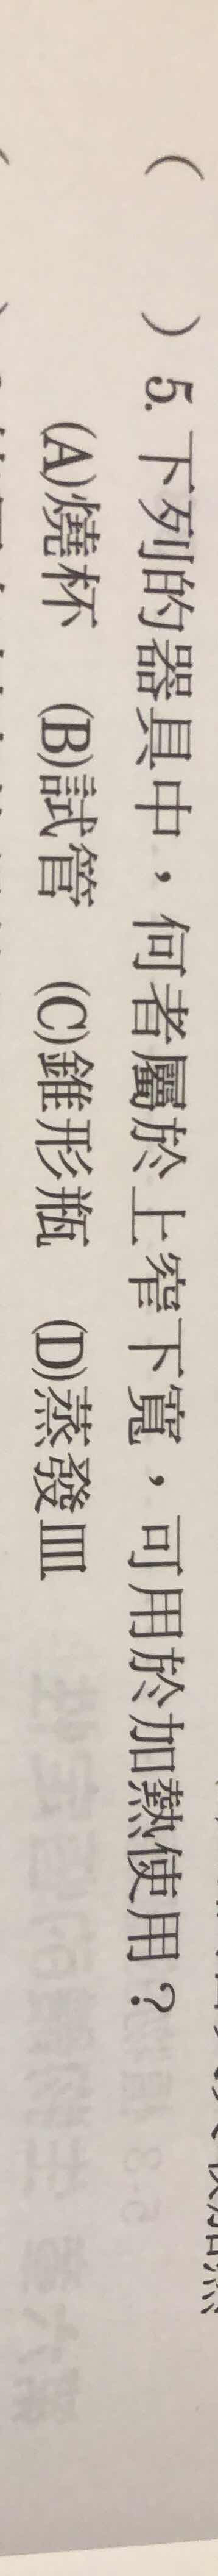 (　　) 5. 下列的器具中，何者屬於上窄下寬，可用於加熱使用？
(A)燒杯　(B)試管　(C)錐形瓶　(D)蒸發皿